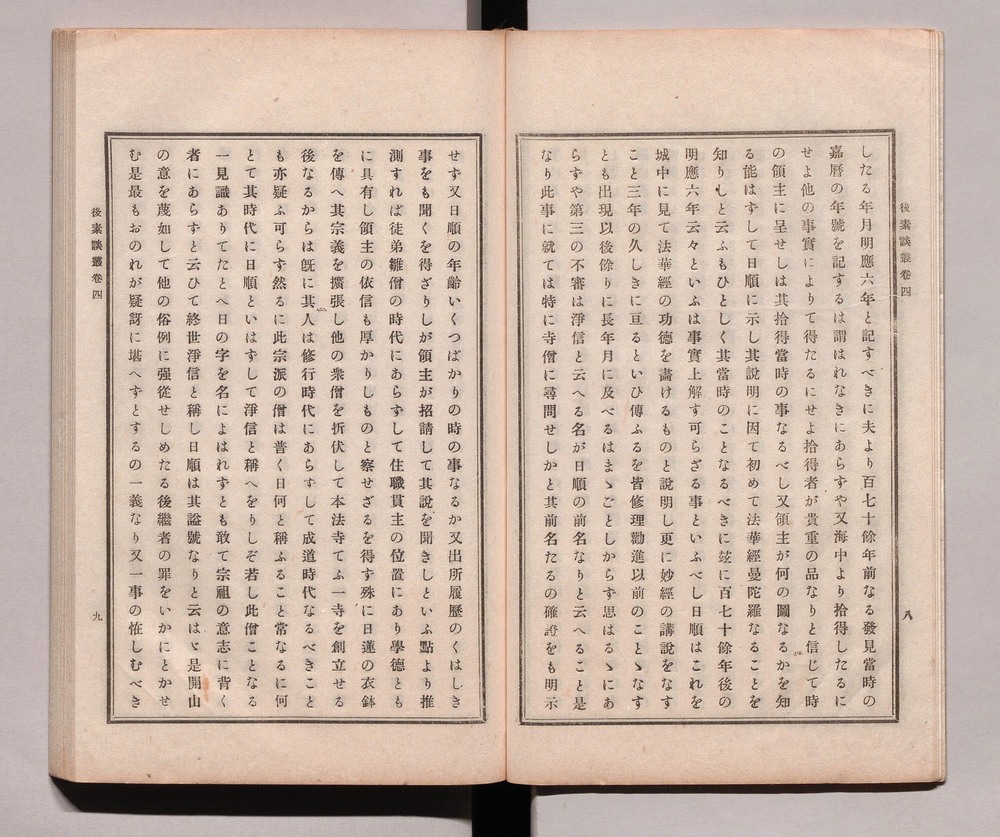 後素談叢卷四
八
したる年月明應六年と記すべきに夫より百七十餘年前なる發見當時の
嘉曆の年號を記するは謂はれなきにあらすや又海中より拾得したるに
せよ他の事實によりて得たるにせよ拾得者が貴重の品なりと信じて時
の領主に呈せしは其拾得當時の事なるべし又領主が何の圖なるかを知
る能はずして日順に示し其說明に因て初めて法華經曼陀羅なることを
知りしと云ふもひとしく其當時のことなるべきに玆に百七十餘年後の
明應六年云々といふは事實上解す可らざる事といふべし日順はこれを
城中に見て法華經の功德を畵けるものと說明し更に妙經の講說をなす
こと三年の久しきに亘るといひ傳ふるを皆修理勸進以前のことゝなす
とも出現以後餘りに長年月に及べるはまゝごとしからず思はるゝにあ
らずや第三の不審は淨信と云へる名が日順の前名なりと云へること是
なり此事に就ては特に寺僧に尋問せしかと其前名たるの確證をも明示
せす又日順の年齡いくつばかりの時の事なるか又出所履歷のくはしき
事をも聞くを得ざりしが領主が招請して其說を聞きしといふ點より推
測すれば徒弟雛僧の時代にあらずして住職貫主の位置にあり學德とも
に具有し領主の依信も厚かりしものと察せざるを得す殊に日蓮の衣鉢
を傳へ其宗義を擴張し他の衆僧を折伏して本法寺てふ一寺を創立せる
後なるからは旣に其人は修行時代にあらすして成道時代なるべきこと
も亦疑ふ可らす然るに此宗派の僧は普く日何と稱ふること常なるに何
とて其時代に日順といはすして淨信と稱へをりしぞ若し此僧ことなる
一見識ありてたとへ日の字を名によはれずとも敢て宗祖の意志に背く
者にあらすと云ひて終世淨信と稱し日順は其諡號なりと云はゞ是開山
の意を蔑如して他の俗例に强從せしめたる後繼者の罪をいかにとかせ
む是最もおのれが疑訝に堪へすとするの一義なり又一事の恠しむべき
後素談叢卷四
九